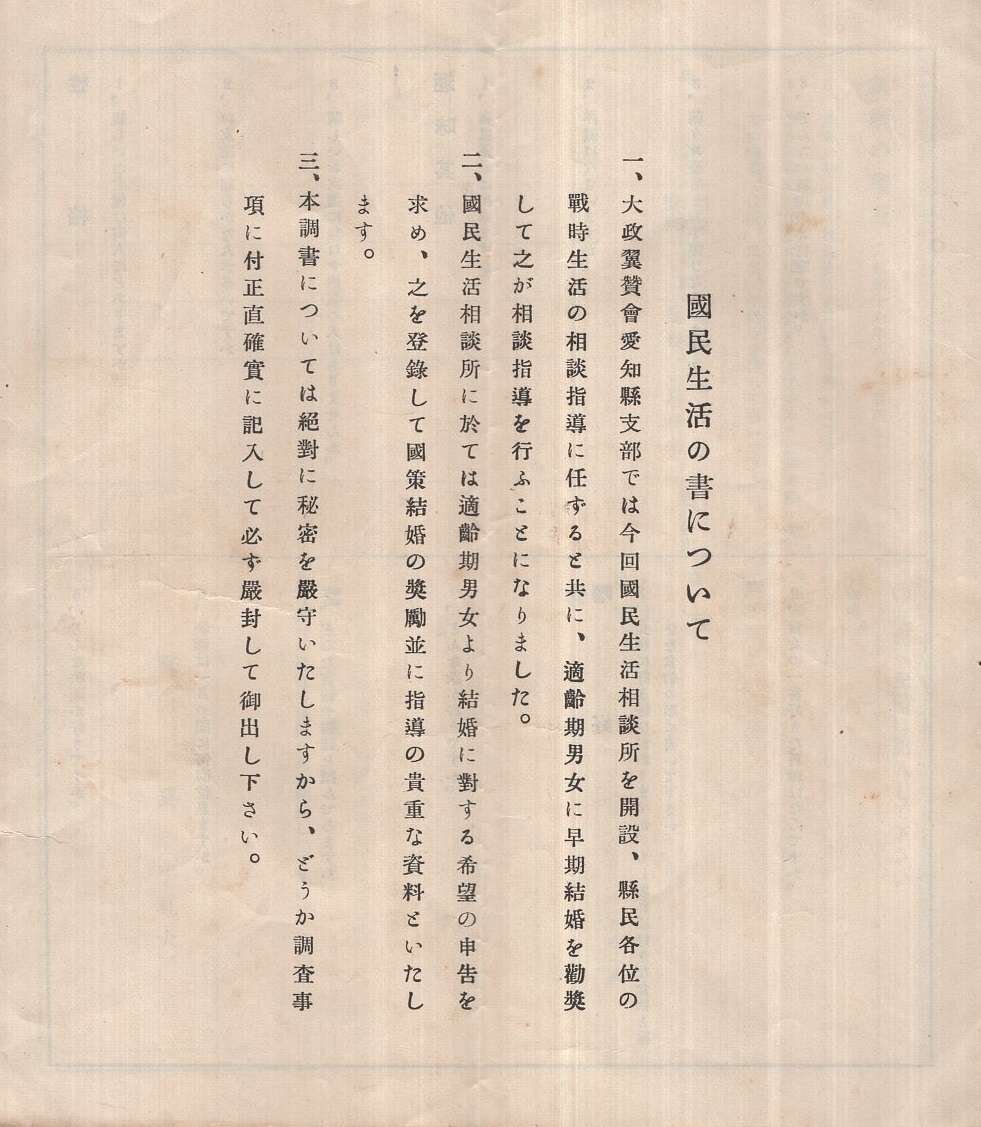 國民生活の書について
一、大政翼贊會愛知縣支部では今回國民生活相談所を開設、縣民各位の
戰時生活の相談指導に任ずると共に、適齡期男女に早期結婚を勸奬
して之が相談指導を行ふことになりました。
二、國民生活相談所に於ては適齡期男女より結婚に對する希望の申告を
求め、之を登錄して國策結婚の奬勵並に指導の貴重な資料といたし
ます。
三、本調書については絕對に秘密を嚴守いたしますから、どうか調査事
項に付正直確實に記入して必ず嚴封して御出し下さい。